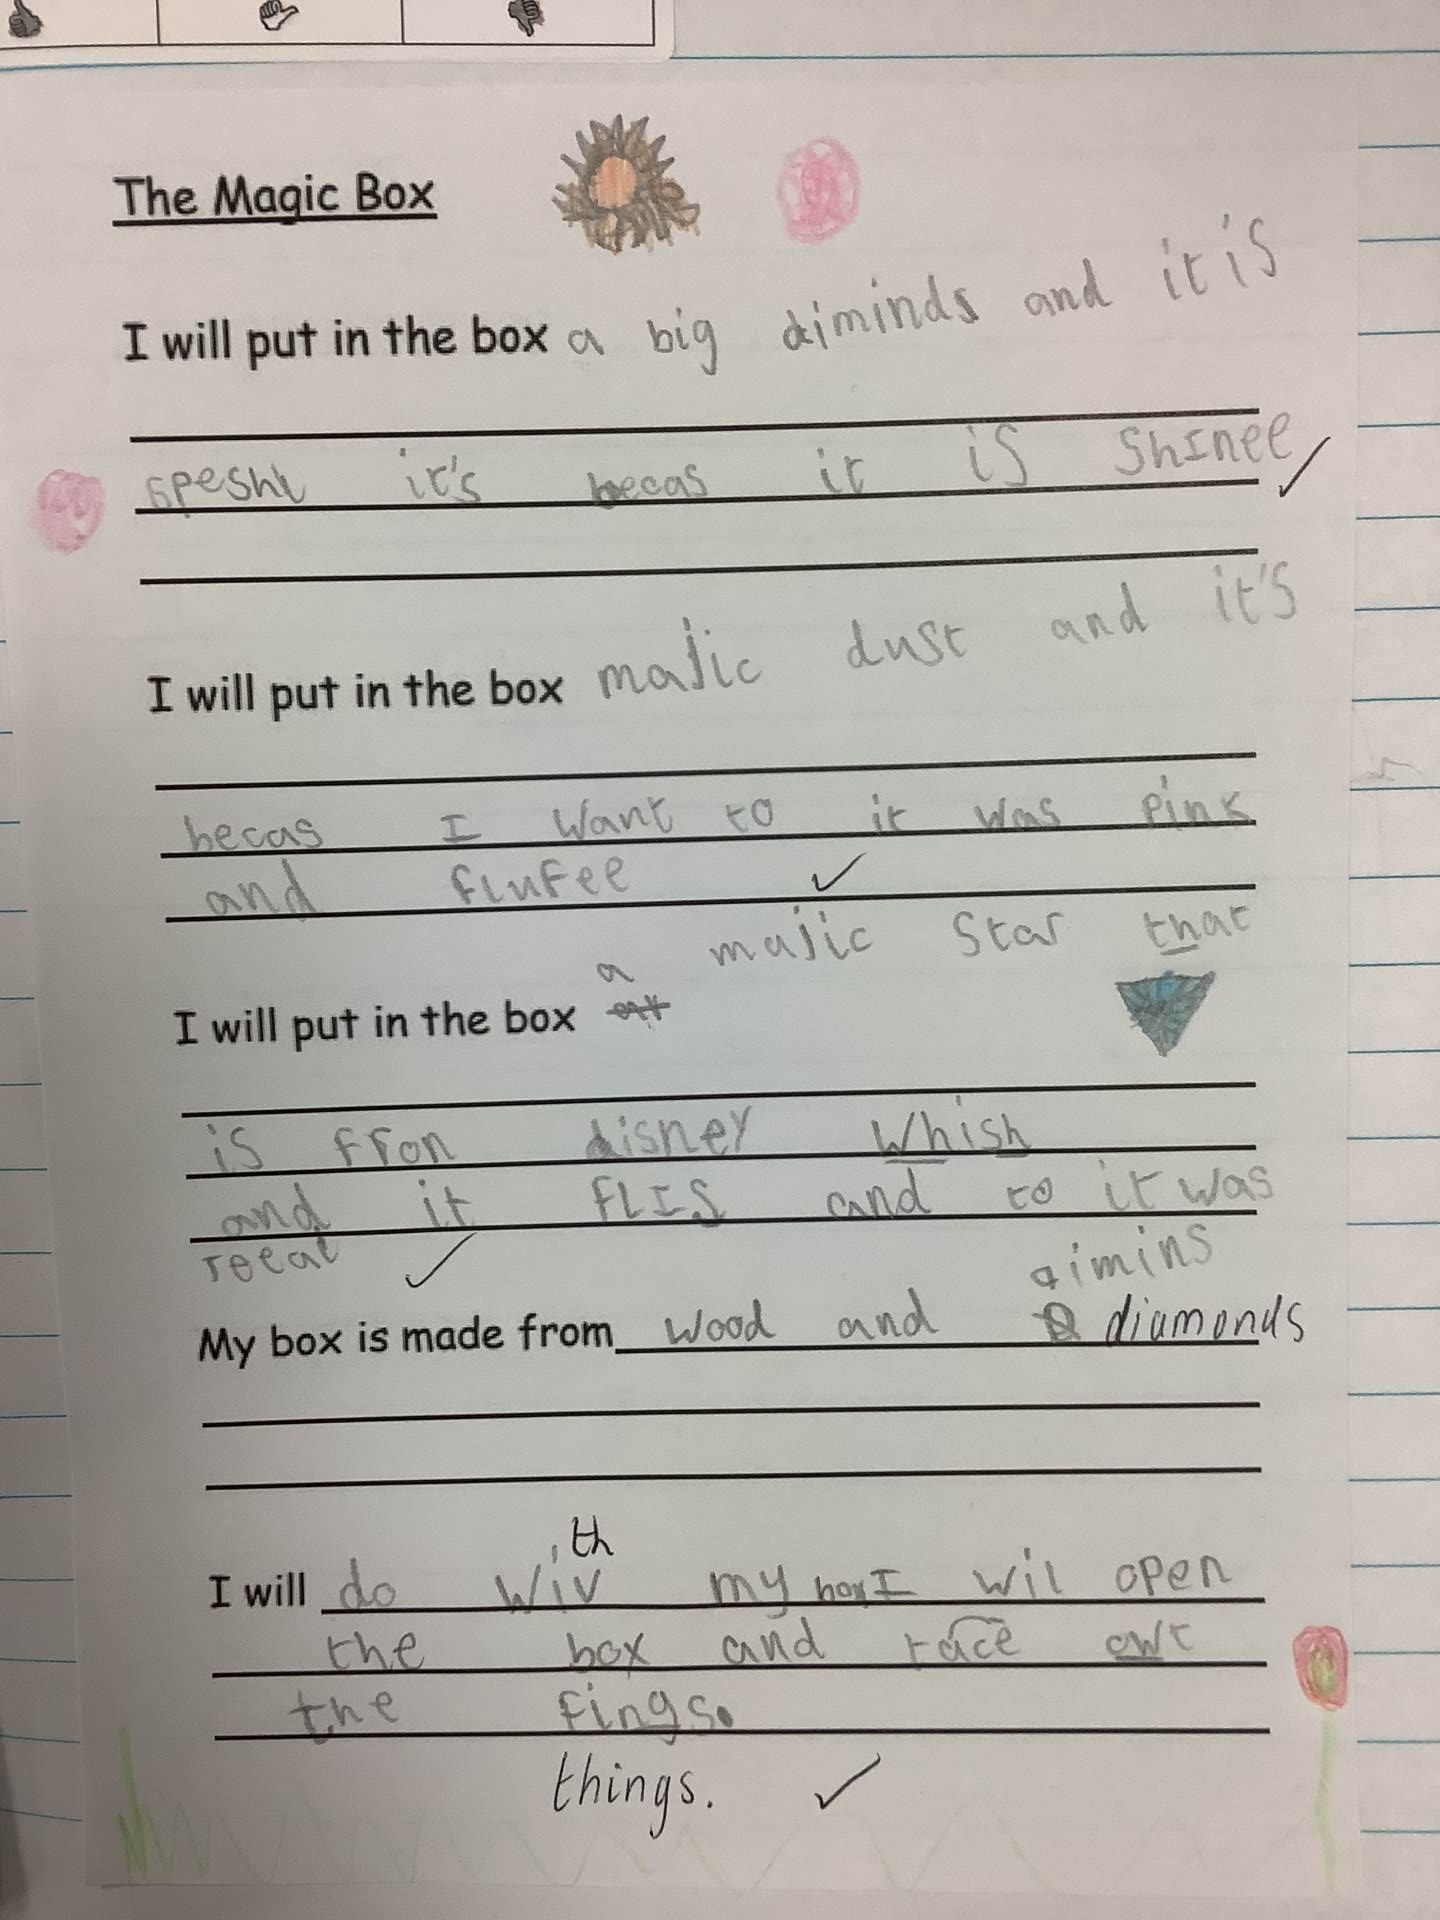 The Magic Box
I will put in the box a big diminds and it is
speshl it's becas it is shinee
I will put in the box majic dust and it's
becas I want to it was pink
and flufee
majic star that
I will put in the box a
is fron disney whish
and it flis and to it was
reeal
dimins
My box is made from wood and diamonds
th
I will do wiv my box I wil open
the box and tace owt
the fings.
things.